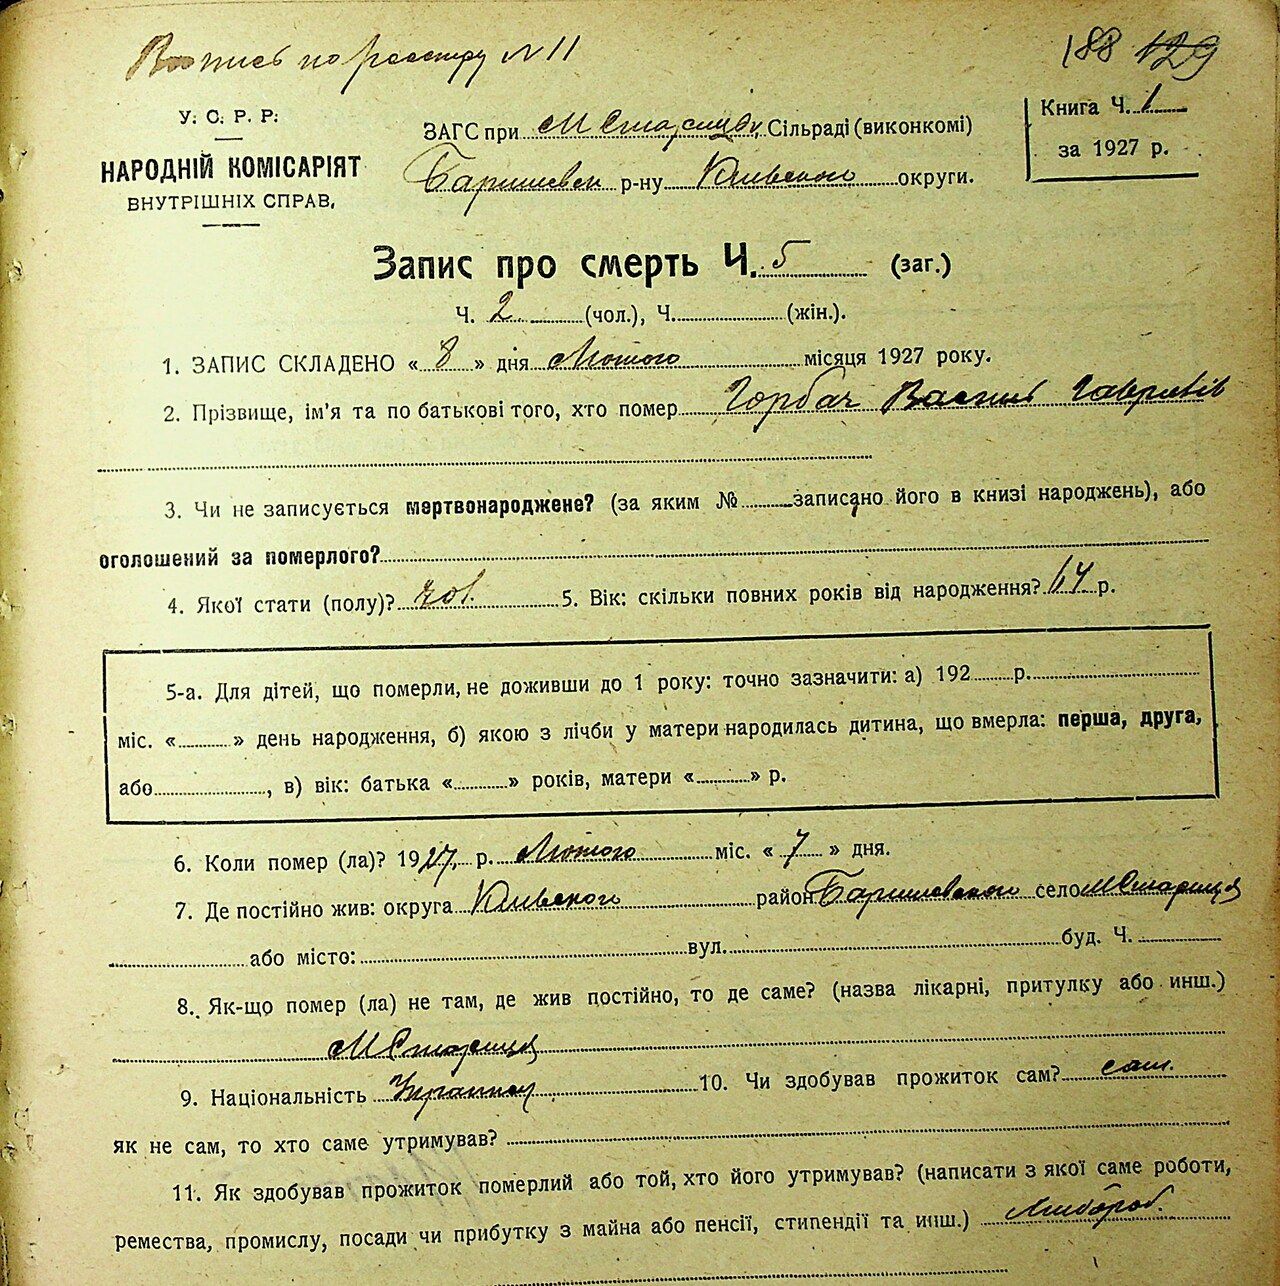 Вопись по реестру № 11
188 129
У. С. Р. Р.
НАРОДНІЙ КОМІСАРІЯТ
ВНУТРІШНІХ СПРАВ,
ЗАГС при М Старицьк. Сільраді (виконкомі)
Баришевськ р-ну Київської округи.
Книга Ч. 1
за 1927 р.
Запис про смерть Ч. 5 (заг.)
Ч. 2 (чол.), Ч. (жін.).
1. ЗАПИС СКЛАДЕНО « 8 » дня Лютого місяця 1927 року.
2. Прізвище, ім'я та по батькові того, хто помер Горбач Василь Гаврилів
3. Чи не записується мертвонароджене? (за яким № записано його в книзі народжень), або
оголошений за померлого?
4. Якої стати (полу)? чол. 5. Вік: скільки повних років від народження? 64 р.
5-а. Для дітей, що померли, не доживши до 1 року: точно зазначити: а) 192 р.
міс. « » день народження, б) якою з лічби у матери народилась дитина, що вмерла: перша, друга,
або , в) вік: батька « » років, матери « » р.
6. Коли помер (ла)? 1927 р. Лютого міс. « 7 » дня.
7. Де постійно жив: округа Київського район Баришевського село М Стариця
або місто: вул. буд. Ч.
8. Як-що помер (ла) не там, де жив постійно, то де саме? (назва лікарні, притулку або инш.)
М Стариця
9. Національність 10. Чи здобував прожиток сам? сам.
як не сам, то хто саме утримував?
11. Як здобував прожиток померлий або той, хто його утримував? (написати з якої саме роботи,
ремества, промислу, посади чи прибутку з майна або пенсії, стипендії та инш.) Хлібороб.